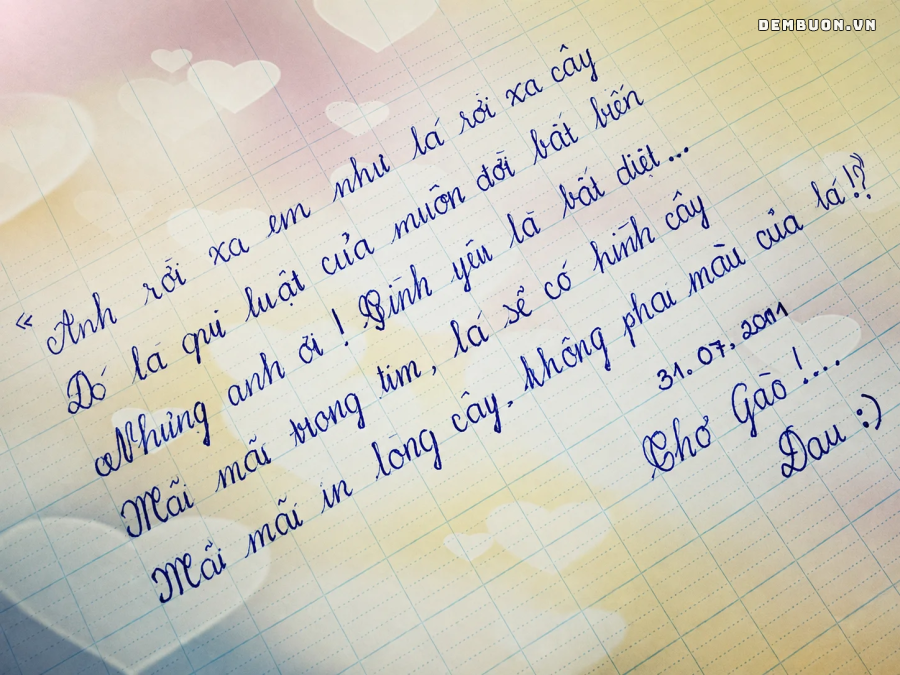 DEMBUON.VN
“ Anh rời xa em như lá rời xa cây
Đó là qui luật của muôn đời bất biến
Nhưng anh ơi ! Tình yêu là bất diệt...
Mãi mãi trong tim, lá sẽ có hình cây
Mãi mãi in lòng cây, không phai màu của lá!?
31.07.2011
Chợ Gạo !....
Đau :)